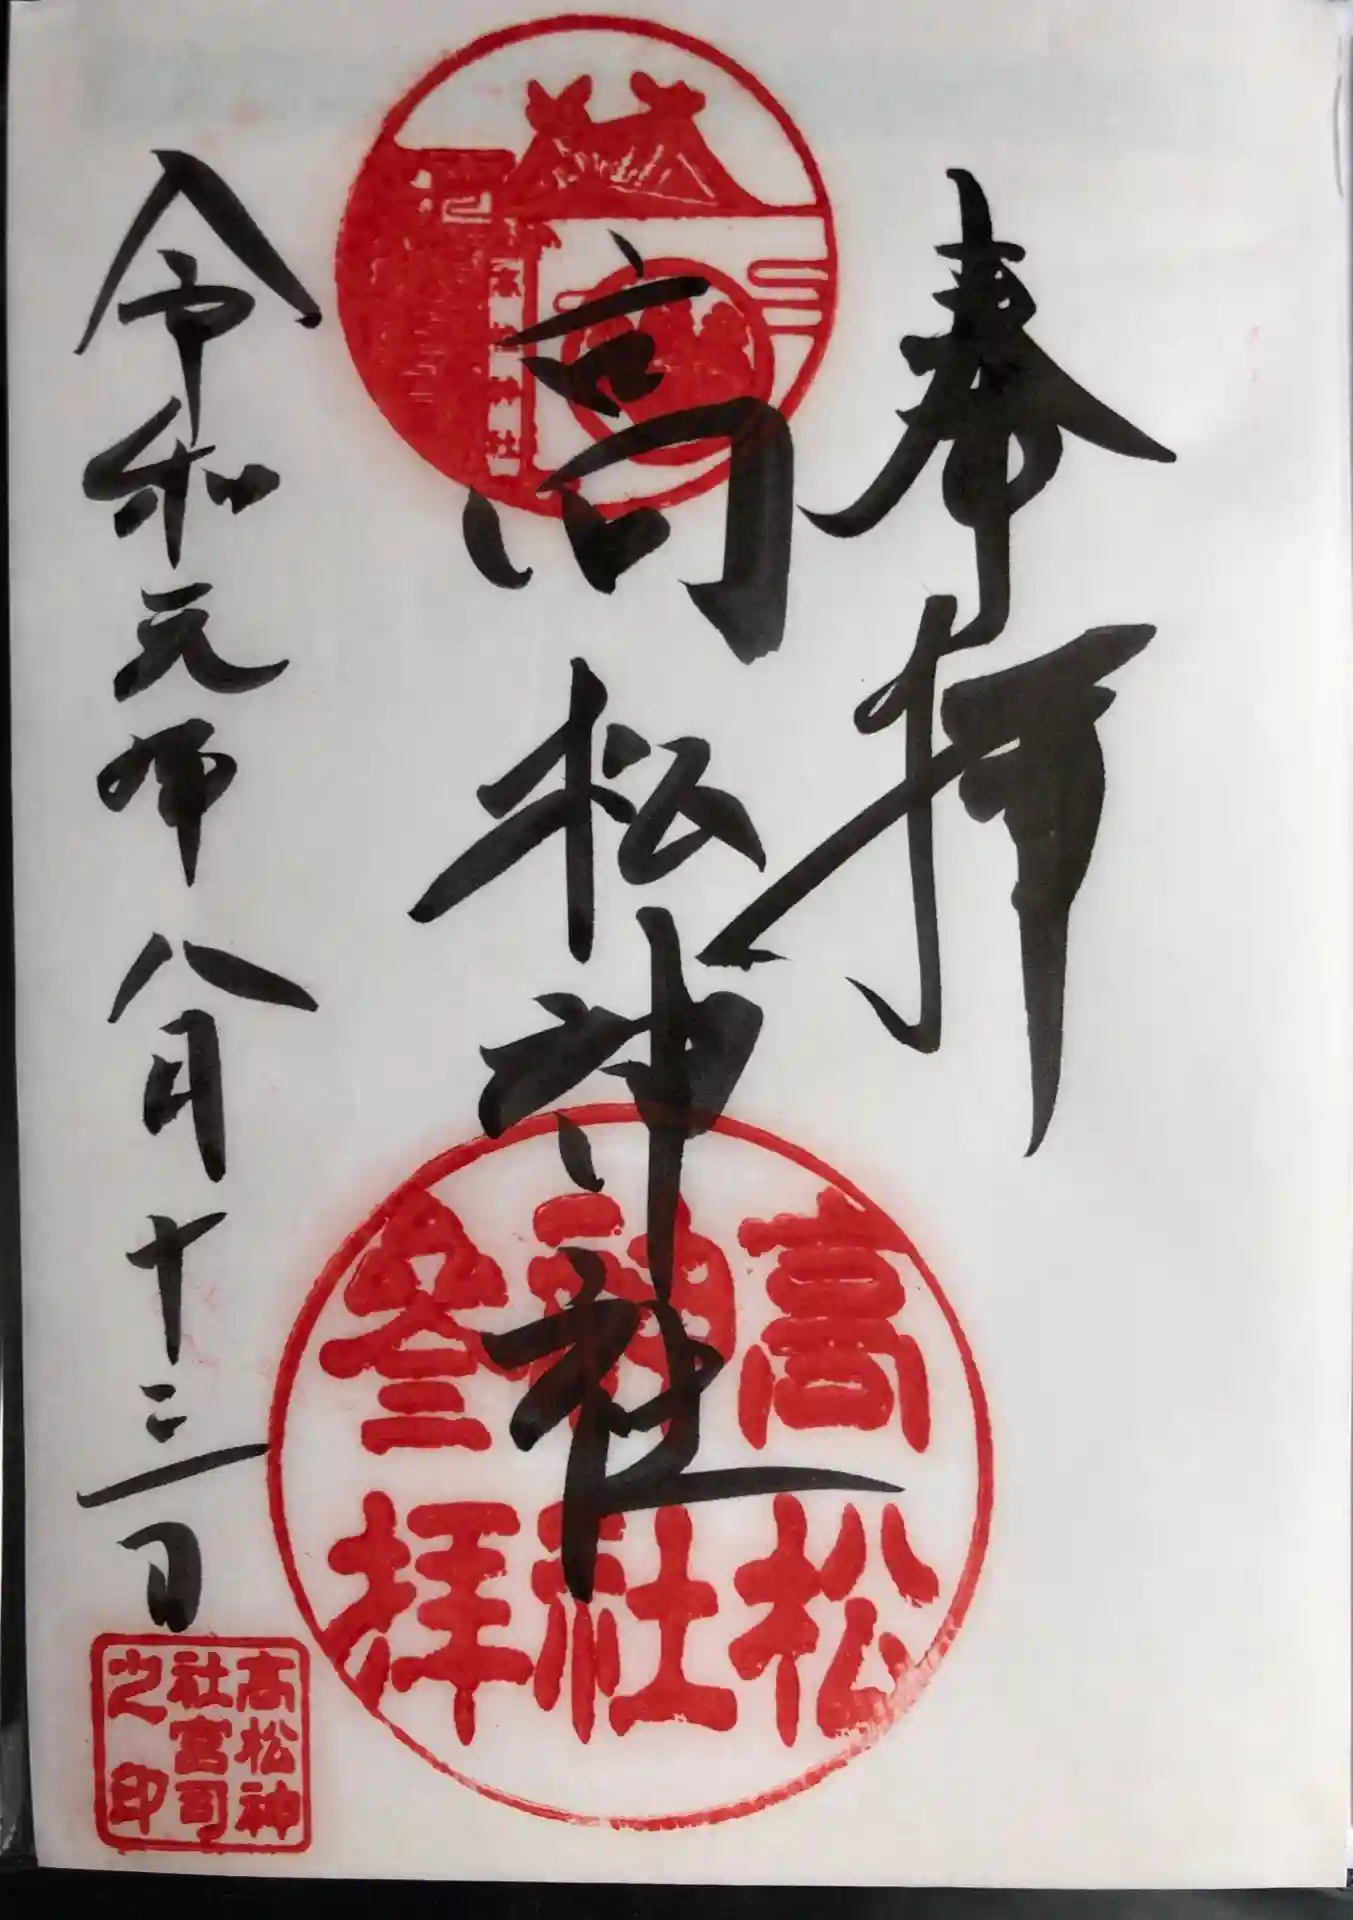 奉拝
高松神社
令和元年八月十三日
高松神社
高松
神社
参拝
高松神
社宮司
之印